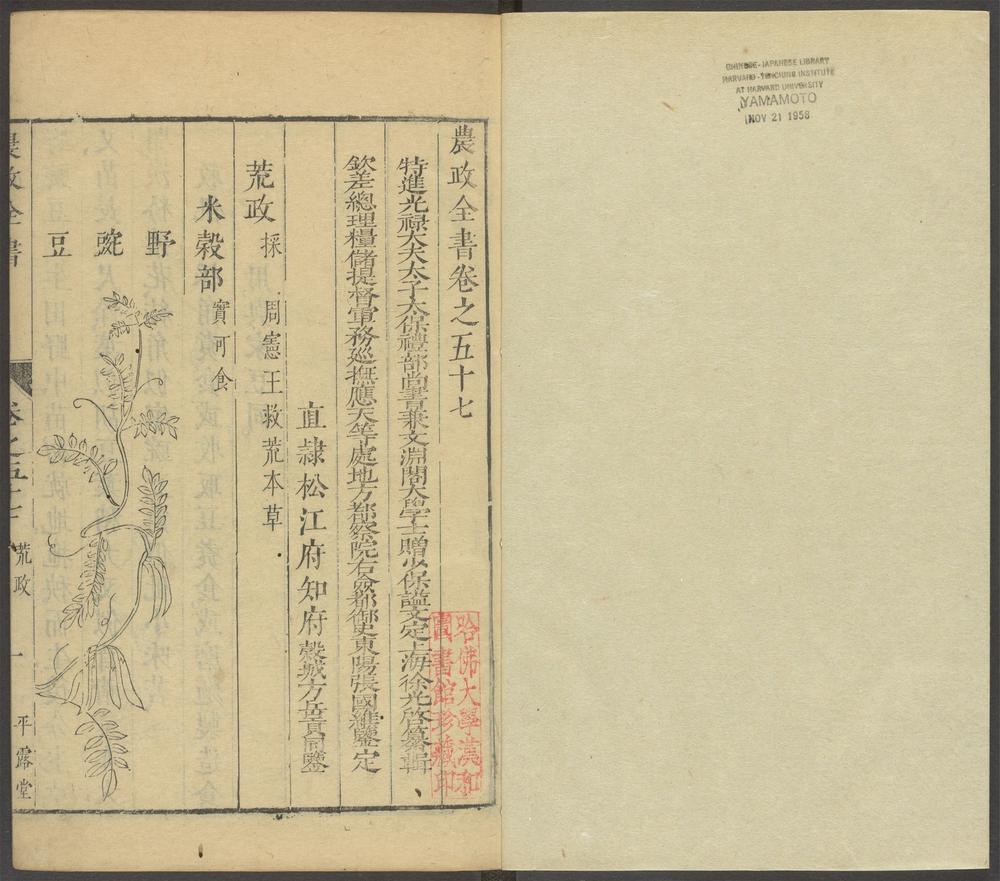 CHINESE-JAPANESE LIBRARY
HARVARD-YENCHING INSTITUTE
AT HARVARD UNIVERSITY
YAMAMOTO
NOV 21 1958
農政全書卷之五十七
特進光祿大夫太子太保禮部尚書兼文淵閣大學士贈少保謚文定上海徐光啓纂輯
欽差總理糧儲提督軍務巡撫應天等處地方都察院右僉都御史東陽張國維鑒定
直隸松江府知府穀城方岳貢同鑒
哈佛大學漢和
圖書館珍藏印
荒政 採周憲王救荒本草
米穀部 實可食
野
豌
豆
農政全書
卷之五十七
荒政
一
平露堂